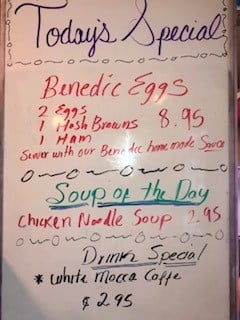 Today's Special
Benedic Eggs
2 Eggs
1 Hosh Browns 8.95
1 Ham
Server with our Benedic home made Sauce
Soup of the Day
Chicken Noodle Soup 2.95
Drink Special
* White Mocca Caffe
$ 2.95